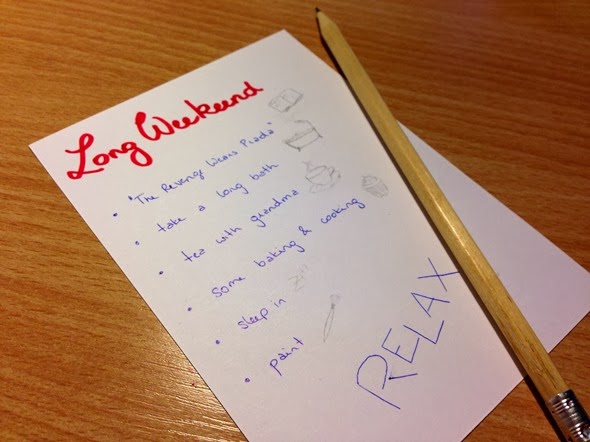 Long Weekend
• "The Revenge Wears Prada"
• take a long bath
• tea with grandma
• some baking & cooking
• sleep in
zzz
• paint
RELAX